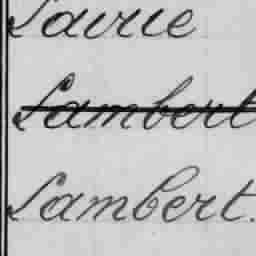 Lavrie
Lambert
Lambert.